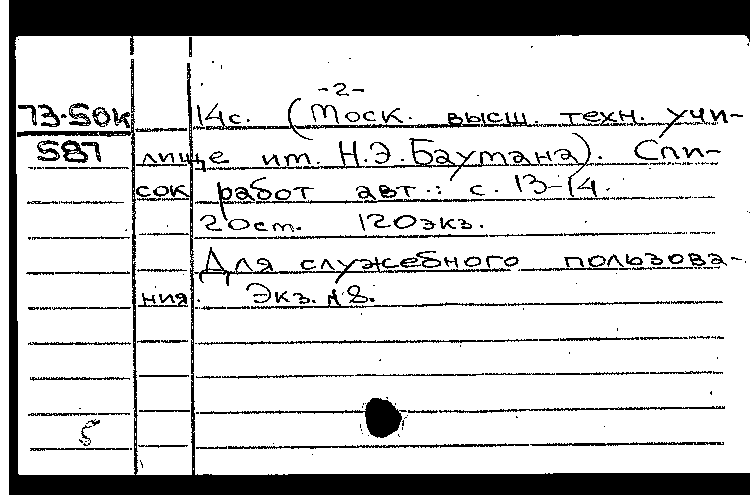 -2-
73-50к 14с. (Моск. высш. техн. учи-
587 лище им. Н.Э.Баумана). Спи-
сок работ авт.: с. 13-14.
20см. 120экз.
Для служебного пользова-
ния. Экз. №8.
5